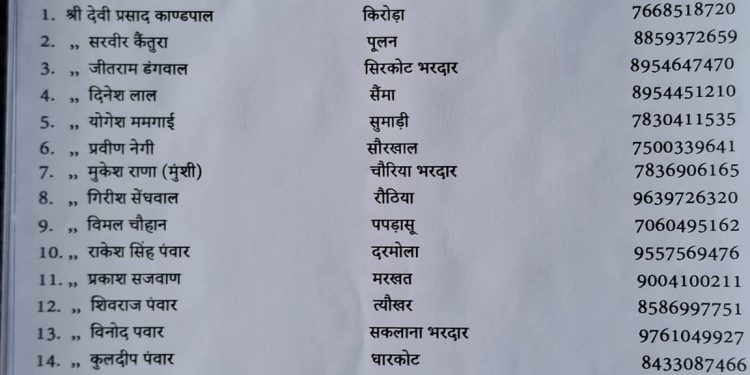 1. श्री देवी प्रसाद काण्डपाल किरोड़ा 7668518720
2. ,, सरवीर कैंतुरा पूलन 8859372659
3. ,, जीतराम डंगवाल सिरकोट भरदार 8954647470
4. ,, दिनेश लाल सैंमा 8954451210
5. ,, योगेश ममगाई सुमाड़ी 7830411535
6. ,, प्रवीण नेगी सौरखाल 7500339641
7. ,, मुकेश राणा (मुंशी) चौरिया भरदार 7836906165
8. ,, गिरीश सेंधवाल रौठिया 9639726320
9. ,, विमल चौहान पपड़ासू 7060495162
10. ,, राकेश सिंह पंवार दरमोला 9557569476
11. ,, प्रकाश सजवाण मरखत 9004100211
12. ,, शिवराज पंवार त्यौखर 8586997751
13. ,, विनोद पवार सकलाना भरदार 9761049927
14. ,, कुलदीप पंवार धारकोट 8433087466